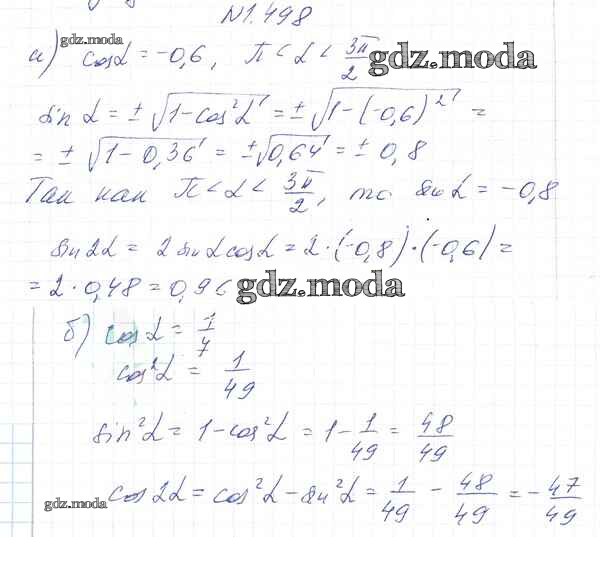 №1.498
gdz.moda
а) cosα = -0,6, π < α < 3π/2
gdz.moda
sin α = ± √(1-cos²α) = ± √(1-(-0,6)²) =
= ± √(1-0,36) = ±√0,64 = ± 0,8
Так как π < α < 3π/2, то sinα = -0,8
sin2α = 2 sinα cosα = 2·(-0,8)·(-0,6) =
= 2 · 0,48 = 0,96
gdz.moda
б) cosα = 1/7
cos²α = 1/49
sin²α = 1-cos²α = 1-1/49 = 48/49
gdz.moda
cos2α = cos²α - sin²α = 1/49 - 48/49 = -47/49